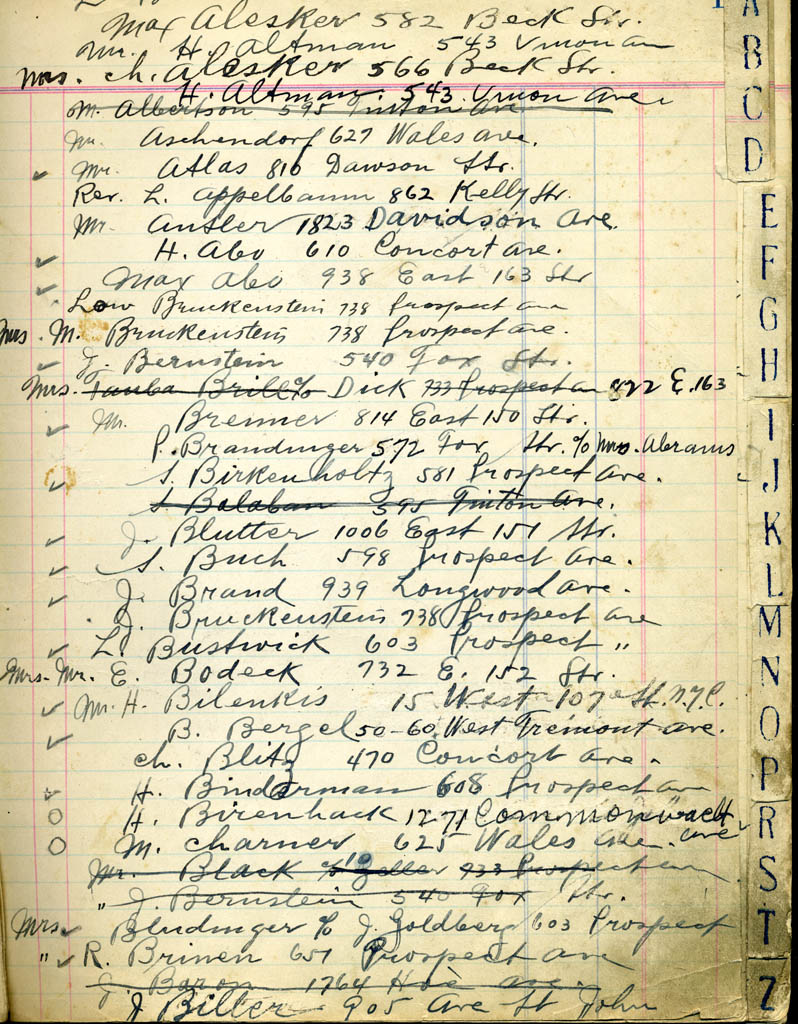 Max Alesker 582 Beck Str.
Mr. H. Altman 543 Union Ave
Mrs. Ch. Alesker 566 Beck Str.
H. Altman 543 Union Ave
M. Albertson 595 Tinton Ave
Mr. Aschendorf 627 Wales ave.
Mr. Atlas 816 Dawson Str.
Rev. L. Appelbaum 862 Kelly Str.
Mr. Antler 1823 Davidson Ave.
H. Abo 610 Concort ave.
Max Abo 938 East 163 Str
Low Bruckenstein 738 Prospect ave
Mrs. M. Bruckenstein 738 Prospect ave.
J. Bernstein 540 Fox Str.
Mrs. Tauba Brill c/o Dick 733 Prospect av 922 E. 163
Mr. Brenner 814 East 150 Str.
P. Brandinger 572 Fox Str. c/o Mrs. Abrams
S. Birkenholtz 581 Prospect Ave.
S. Balaban 595 Tinton Ave.
J. Blutter 1006 East 151 Str.
S. Buch 598 Prospect Ave.
J. Brand 939 Longwood ave.
J. Bruckenstein 738 Prospect ave
L. Bustwick 603 Prospect "
Mrs. Mr. E. Bodeck 732 E. 152 Str.
Mr. H. Bilenkis 15 West 107 St. N.Y.C.
B. Bergel 50-60 West Tremont ave.
Ch. Blitz 470 Concort Ave.
H. Binderman 608 Prospect av
H. Birenhack 1271 Commonwaelt ave
M. Charner 625 Wales ave.
Mr. Black c/o Zeller 933 Prospect av
" J. Bernstein 540 Fox Str.
Mrs. Bludinger c/o J. Goldberg 603 Prospect
" R. Brinen 651 Prospect ave
J. Baron 1764 Hoe ave.
J Biller 905 Ave St John
A
B
C
D
E
F
G
H
I
J
K
L
M
N
O
P
R
S
T
Z